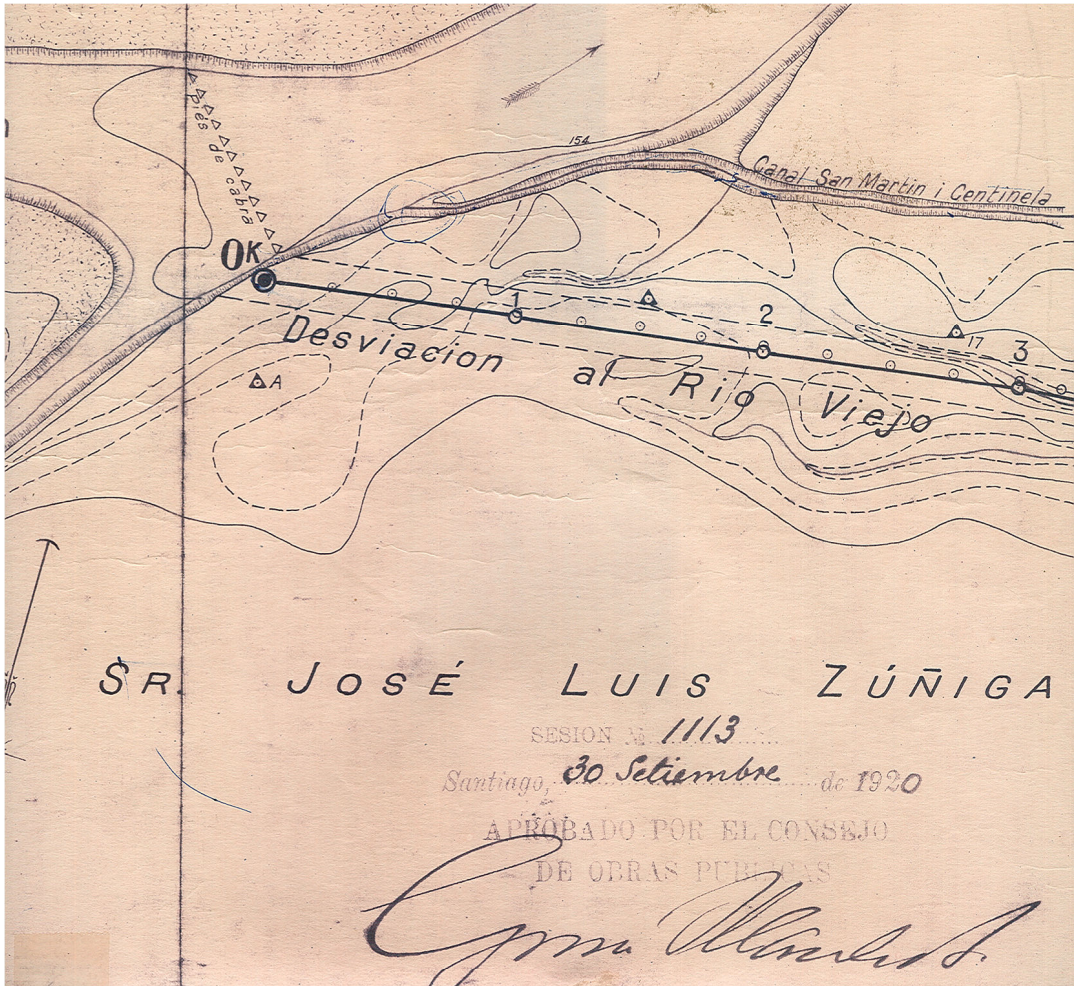 154
Canal San Martin i Centinela
pies de cabra
0K
1
2
17
3
Desviacion al Rio Viejo
A
SR. JOSÉ LUIS ZÚÑIGA
SESION No 1113
Santiago, 30 Setiembre de 1920
APROBADO POR EL CONSEJO
DE OBRAS PUBLICAS